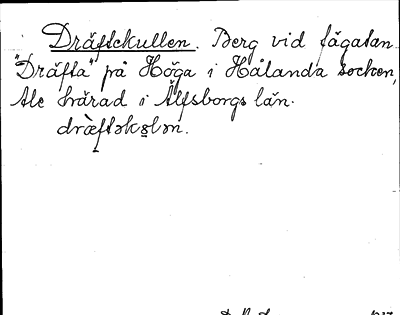 Dräftekullen. Berg vid fägatan
"Dräfta" på Höga i Hålanda socken,
Ale härad i Älfsborgs län.
dræ̀ftəkɷlən.